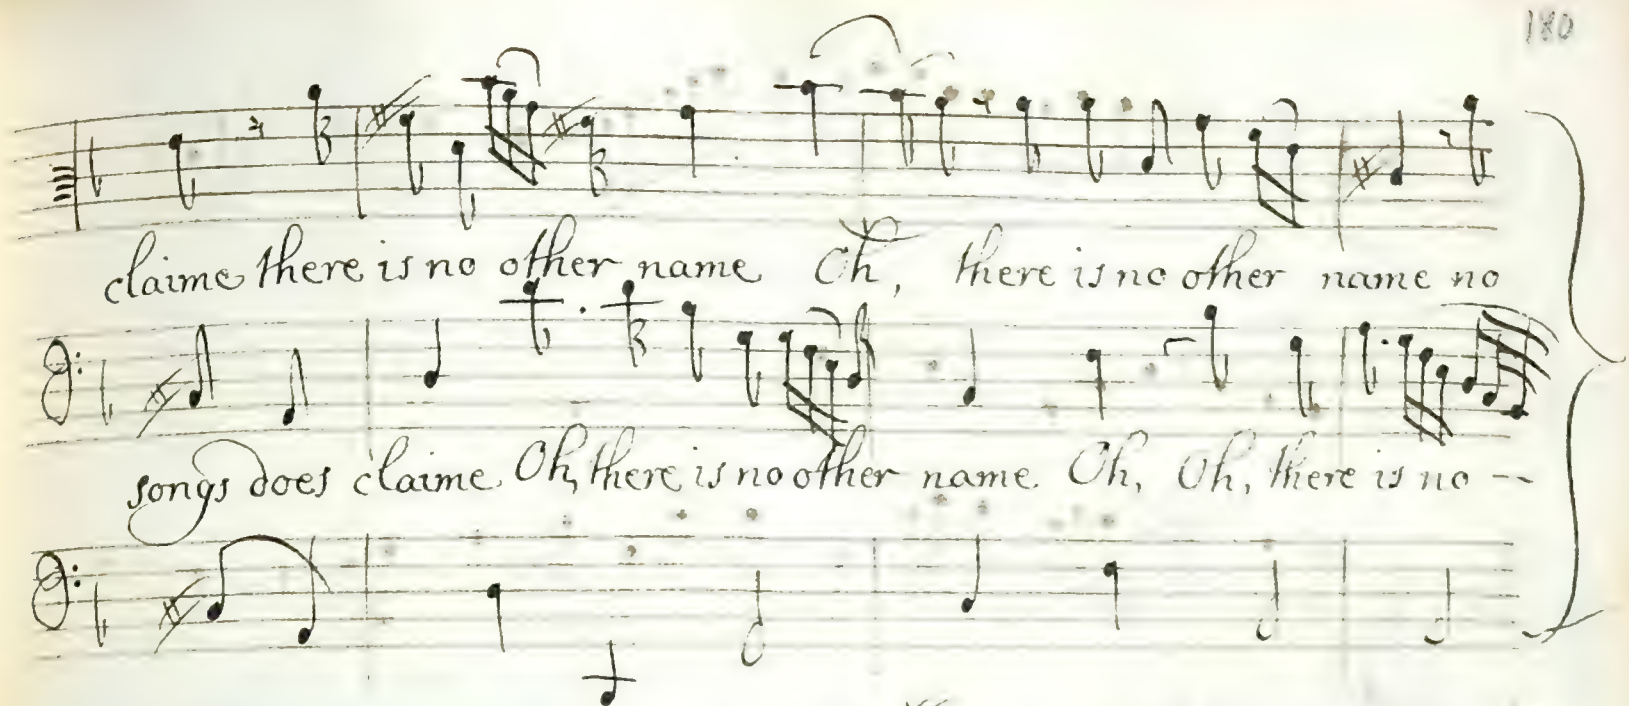 180
claime there is no other name Oh, there is no other name no
songs does claime Oh, there is no other name. Oh, Oh, there is no --